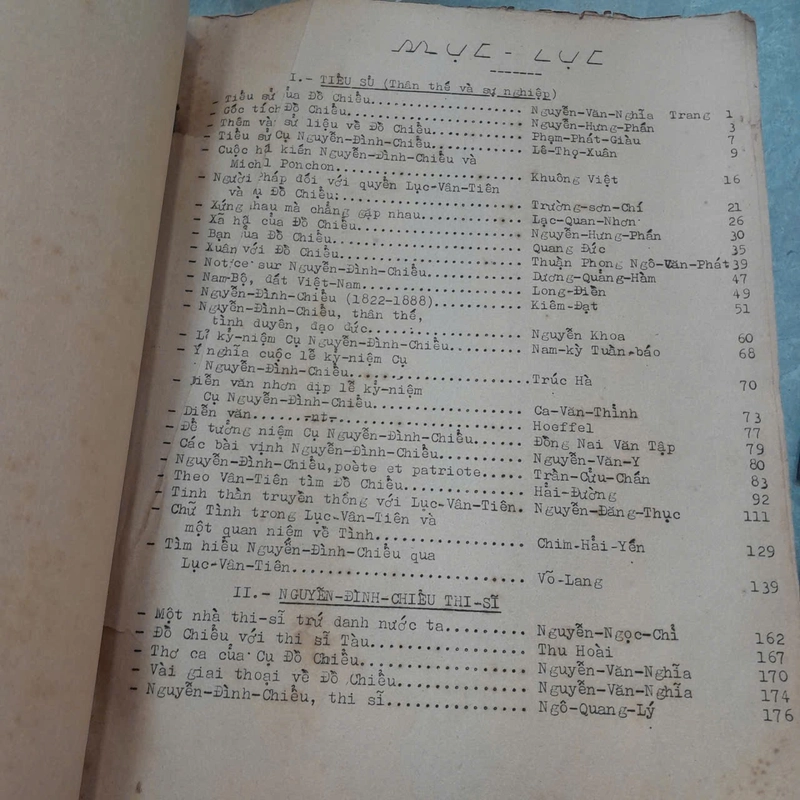 MỤC - LỤC
I.- TIỂU SỬ (Thân thế và sự nghiệp)
- Tiểu sử của Đồ Chiểu.................... Nguyễn-Văn-Nghĩa Trang 1
- Gốc tích Đồ Chiểu.................... Nguyễn-Hưng-Phấn 3
- Thêm vài sử liệu về Đồ Chiểu.......... Phạm-Phát-Giàu 7
- Tiểu sử Cụ Nguyễn-Đình-Chiểu.......... Lê-Thọ-Xuân 9
- Cuộc hộ kiến Nguyễn-Đình-Chiểu và
Michl Ponchon.................... Khuông Việt 16
- Người Pháp đối với quyển Lục-Vân-Tiên
và Đồ Chiểu:.................... Trương-sơn-Chí 21
- Xứng nhau mà chẳng gặp nhau.......... Lạc-Quan-Nhơn 26
- Xã hội của Đồ Chiểu.................... Nguyễn-Hưng-Phấn 30
- Bạn của Đồ Chiểu.................... Quang Đức 35
- Xuân với Đồ Chiểu.................... Thuần Phong Ngô-Văn-Phát 39
- Notice sur Nguyễn-Đình-Chiểu.......... Dương-Quảng-Hàm 47
- Nam-Bộ, đất Việt-Nam.................... Long-Điền 49
- Nguyễn-Đình-Chiểu (1822-1888).......... Kiêm-Đạt 51
- Nguyễn-Đình-Chiểu, thân thế,
tình duyên, đạo đức.................... Nguyễn Khoa 60
- Lễ kỷ-niệm Cụ Nguyễn-Đình-Chiểu.......... Nam-kỳ Tuần-báo 68
- Ý nghĩa cuộc lễ kỷ-niệm Cụ
Nguyễn-Đình-Chiểu.................... Trúc Hà 70
- Diễn văn nhơn dịp lễ kỷ-niệm
Cụ Nguyễn-Đình-Chiểu.................... Ca-Văn-Thỉnh 73
- Diễn văn.......-nt-.................... Hoeffel 77
- Để tưởng niệm Cụ Nguyễn-Đình-Chiểu...... Đồng Nai Văn Tập 79
- Các bài vịnh Nguyễn-Đình-Chiểu.......... Nguyễn-Văn-Y 80
- Nguyễn-Đình-Chiểu, poète et patriote..... Trần-Cửu-Chấn 83
- Theo Vân-Tiên tìm Đồ Chiểu.......... Hải-Đường 92
- Tinh thần truyền thống với Lục-Vân-Tiên. Nguyễn-Đăng-Thục 111
- Chữ Tình trong Lục-Vân-Tiên và
một quan niệm về Tình.................... Chim-Hải-Yến 129
- Tìm hiểu Nguyễn-Đình-Chiểu qua
Lục-Vân-Tiên.................... Võ-Lang 139
II.- NGUYỄN-ĐÌNH-CHIỂU THI-SĨ
- Một nhà thi-sĩ trứ danh nước ta.......... Nguyễn-Ngọc-Chỉ 162
- Đồ Chiểu với thi sĩ Tàu.................... Thu Hoài 167
- Thơ ca của Cụ Đồ Chiểu.................... Nguyễn-Văn-Nghĩa 170
- Vài giai thoại về Đồ Chiểu.......... Nguyễn-Văn-Nghĩa 174
- Nguyễn-Đình-Chiểu, thi sĩ.......... Ngô-Quang-Lý 176